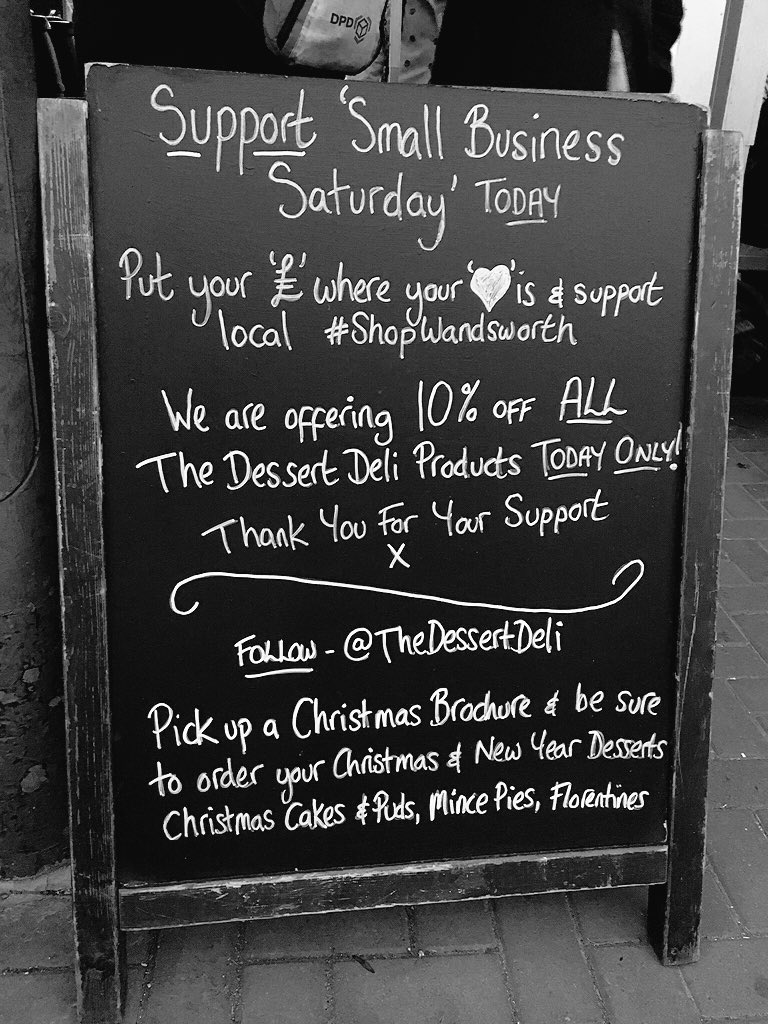 DPD
Support 'Small Business
Saturday' TODAY
Put your '£' where your '♥' is & support
local #ShopWandsworth
We are offering 10% OFF ALL
The Dessert Deli Products TODAY ONLY!
Thank You For Your Support
X
FOLLOW - @TheDessertDeli
Pick up a Christmas Brochure & be sure
to order your Christmas & New Year Desserts
Christmas Cakes & Puds, Mince Pies, Florentines